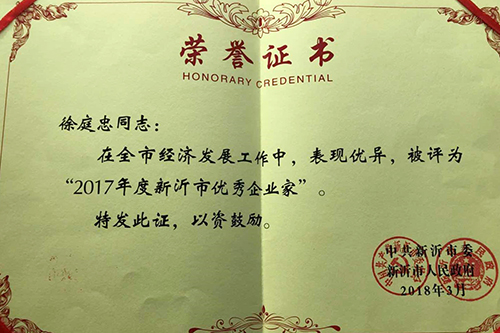 荣誉证书
HONORARY CREDENTIAL
徐庭忠同志：
在全市经济发展工作中，表现优异，被评为
“2017年度新沂市优秀企业家”。
特发此证，以资鼓励。
中共新沂市委
新沂市人民政府
2018年3月